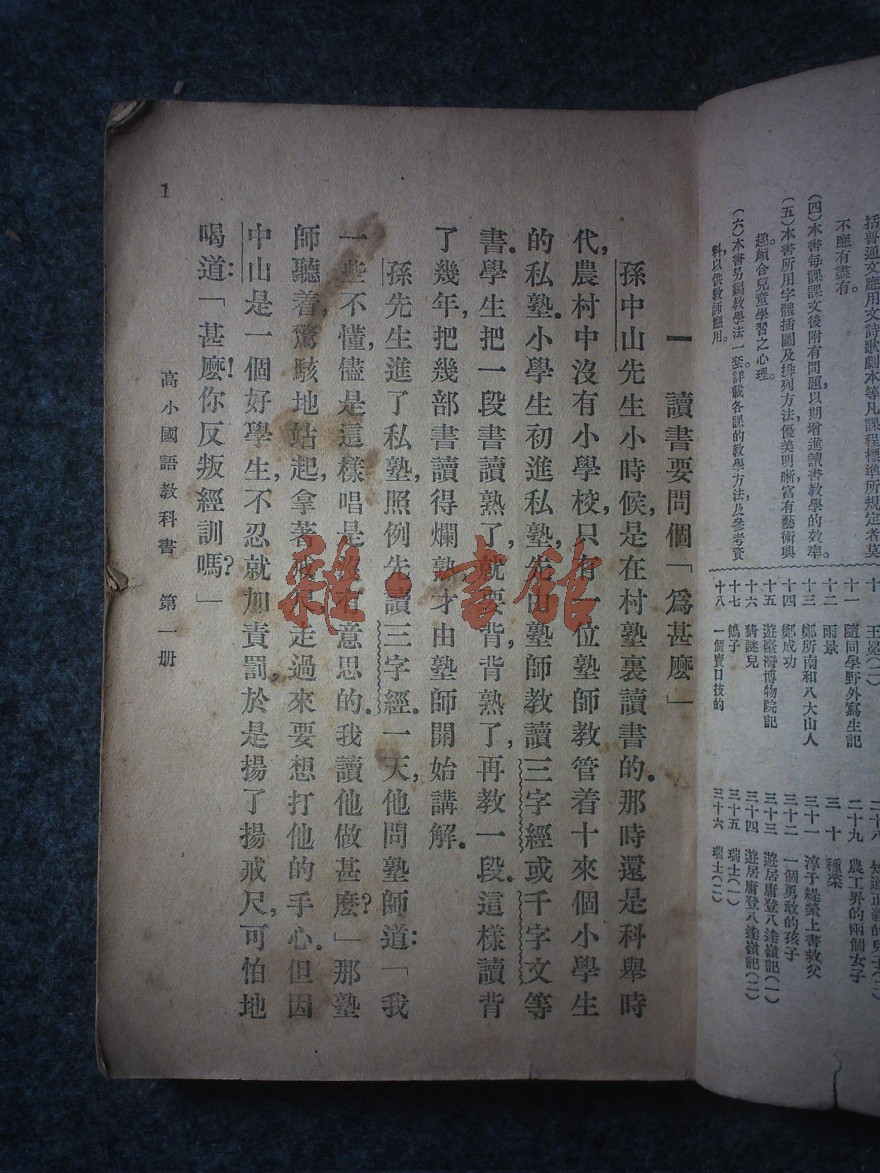 括普通文應用文詩歌劇本等凡課程標準所規定者莫
不應有盡有。
(四)本書每課課文後附有問題,以期增進讀書教學的效率。
(五)本書所用字體插圖及排列方法,優美明晰,富有藝術興
趣,頗合兒童學習之心理。
(六)本書另編教學法一套,詳載各課的教學方法及參考資
料,以供教師應用。
十 王冕(二)
十一 隨同學野外寫生記
十二 雨景
十三 鄭所南和八大山人
十四 鄭成功
十五 遊臺灣博物院記
十六 猜謎兒
十七 鴿子
十八 一個賣口技的
二十九 農工界的兩個女子
三十 種菜
三十一 淳于緹縈上書救父
三十二 一個勇敢的孩子
三十三 遊居庸登八達嶺記(一)
三十四 遊居庸登八達嶺記(二)
三十五 瑞士(一)
三十六 瑞士(二)
一 讀書要問個「爲甚麼」
孫中山先生小時候,是在村塾裏讀書的。那時還是科舉時
代,農村中沒有小學校,只有一位塾師教管着十來個小學生
的私塾。小學生初進私塾,先由塾師教讀三字經或千字文等
書。學生把一段書讀熟了,就要背,背熟了,再教一段。這樣讀背
了幾年,把幾部書讀得爛熟,才由塾師開始講解。
孫先生進了私塾,照例先讀三字經。一天,他問塾師道:「我
一些不懂,儘是這樣唱是沒有意思的。我讀他做甚麽?」那塾
師聽着,驚駭地站起,拿著戒尺走過來要想打他的手心。但因
中山是一個好學生,不忍就加責罰,於是揚了揚戒尺,可怕地
喝道:「甚麽!你反叛經訓嗎?」
高小國語教科書 第一册
1
雜·書館